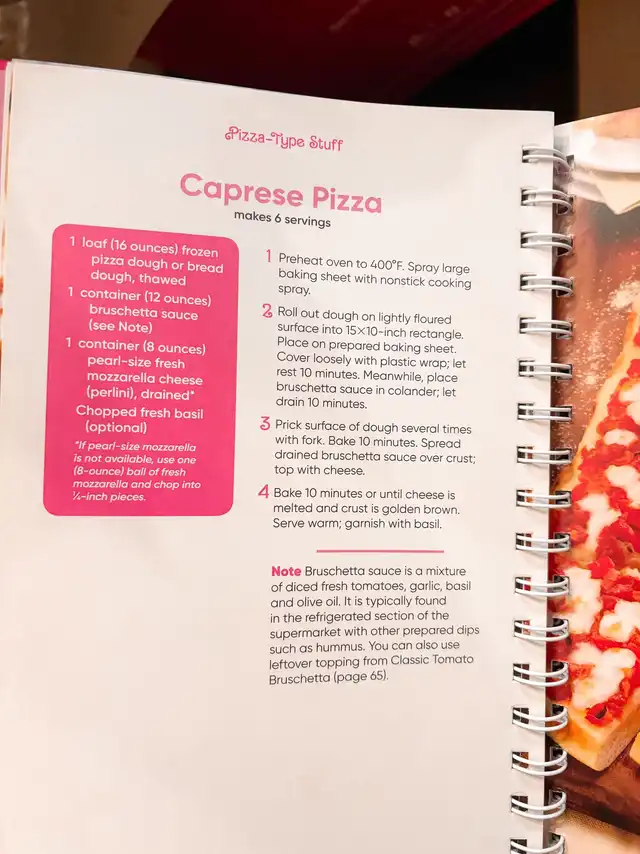 Pizza-Type Stuff
Caprese Pizza
makes 6 servings
1 loaf (16 ounces) frozen
pizza dough or bread
dough, thawed
1 container (12 ounces)
bruschetta sauce
(see Note)
1 container (8 ounces)
pearl-size fresh
mozzarella cheese
(perlini), drained*
Chopped fresh basil
(optional)
*If pearl-size mozzarella
is not available, use one
(8-ounce) ball of fresh
mozzarella and chop into
¼-inch pieces.
1 Preheat oven to 400°F. Spray large
baking sheet with nonstick cooking
spray.
2 Roll out dough on lightly floured
surface into 15×10-inch rectangle.
Place on prepared baking sheet.
Cover loosely with plastic wrap; let
rest 10 minutes. Meanwhile, place
bruschetta sauce in colander; let
drain 10 minutes.
3 Prick surface of dough several times
with fork. Bake 10 minutes. Spread
drained bruschetta sauce over crust;
top with cheese.
4 Bake 10 minutes or until cheese is
melted and crust is golden brown.
Serve warm; garnish with basil.
Note Bruschetta sauce is a mixture
of diced fresh tomatoes, garlic, basil
and olive oil. It is typically found
in the refrigerated section of the
supermarket with other prepared dips
such as hummus. You can also use
leftover topping from Classic Tomato
Bruschetta (page 65).